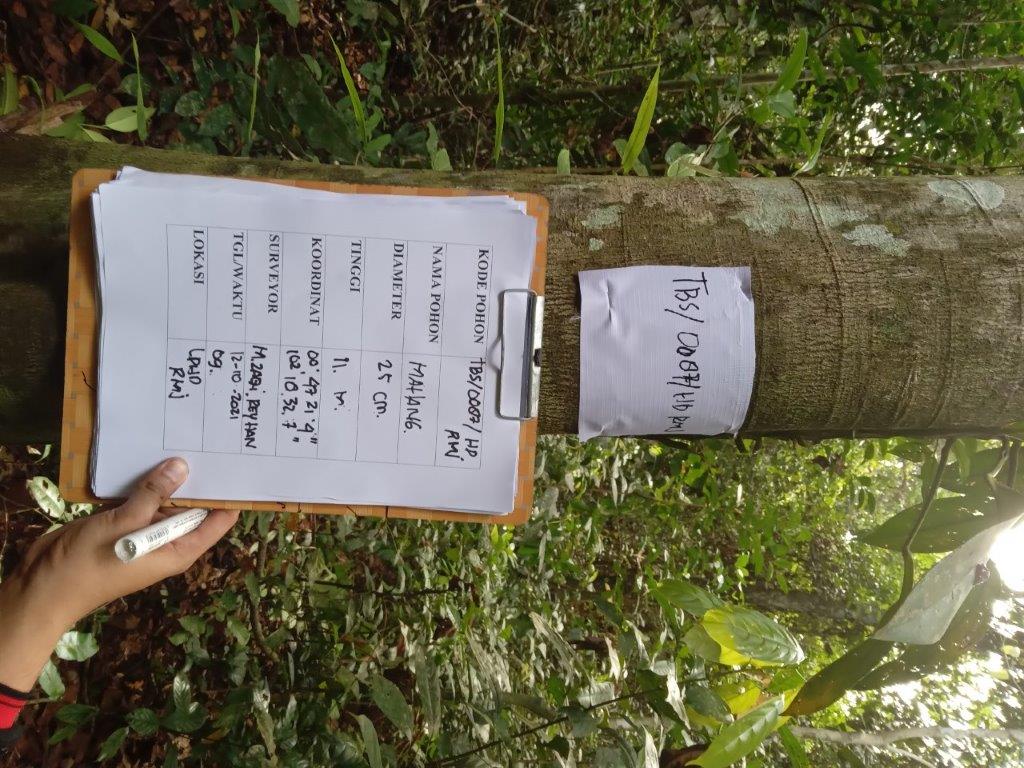 TBS/0087/HD RMJ
KODE POHON TBS/0087/ HD
RMJ
NAMA POHON MAHANG.
DIAMETER 25 cm.
TINGGI 11. M.
KOORDINAT 00° 47 21 '4"
102° 10. 32. 7"
SURVEYOR M. ZAKI. REYHAN
TGL/WAKTU 12-10-2021
09.
LOKASI LPHD
RMJ